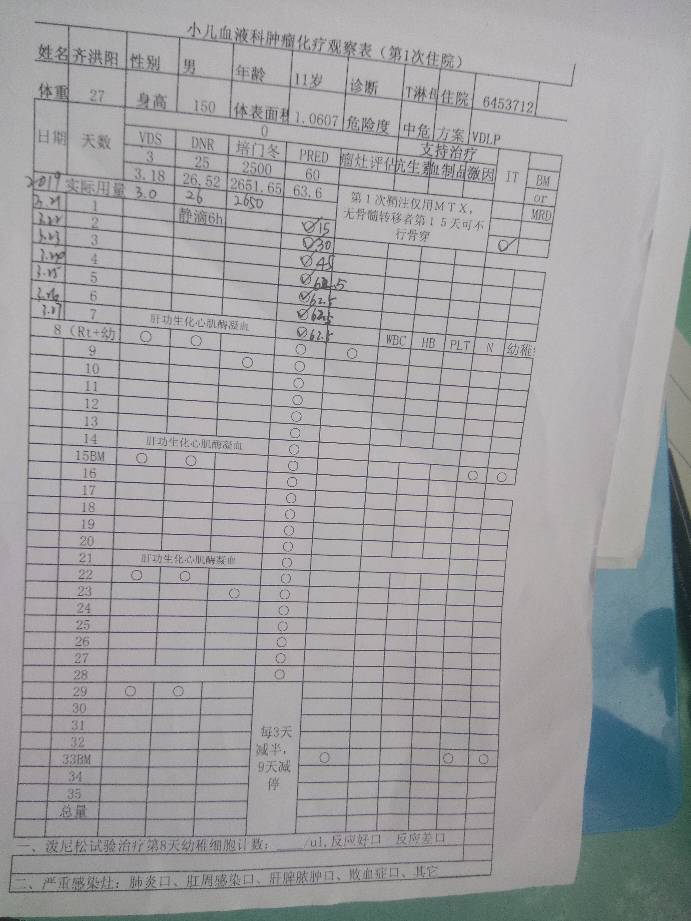 小儿血液科肿瘤化疗观察表（第1次住院）
姓名 齐洪阳 性别 男 年龄 11岁 诊断 T淋 住院 6453712
体重 27 身高 150 体表面积 1.0607 危险度 中危 方案 VDLP
0 支持治疗
日期 天数 VDS DNR 培门冬 PRED 瘤灶评估 抗生素 血制品 激因 IT BM
3 25 2500 60 or
3.18 26.52 2651.65 63.6 MRD
2019 实际用量 3.0 26 2650 第1次鞘注仅用MTX，
3.21 1 静滴6h 15 无骨髓转移者第15天可不
3.22 2 30 行骨穿
3.23 3 45
3.24 4
3.25 5 62.5
3.26 6 62.5
3.27 7 肝功生化心肌酶凝血 62.5
8（Rt+幼 WBC HB PLT N 幼稚
9
10
11
12
13
14 肝功生化心肌酶凝血
15BM
16
17
18
19
20
21 肝功生化心肌酶凝血
22
23
24
25
26
27
28
29
30
31 每3天
32 减半，
33BM 9天减
34 停
35
总量
一、泼尼松试验治疗第8天幼稚细胞计数：____/ul,反应好口 反应差口
二、严重感染灶：肺炎口、肛周感染口、肝脾脓肿口、败血症口、其它